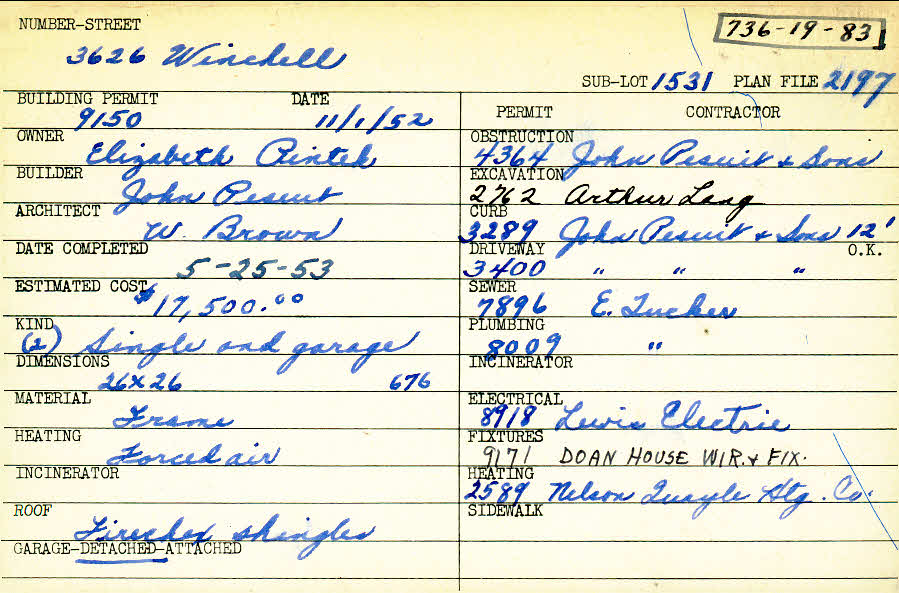 NUMBER-STREET
736-19-83
3626 Winchell
SUB-LOT 1531 PLAN FILE 2197
BUILDING PERMIT DATE
9150 11/1/52
OWNER
Elizabeth Rintek
BUILDER
John Pesuit
ARCHITECT
W. Brown
DATE COMPLETED
5-25-53
ESTIMATED COST
$17,500.00
KIND
(2) Single and garage
DIMENSIONS
26x26 676
MATERIAL
Frame
HEATING
Forced air
INCINERATOR
ROOF
Firechex shingles
GARAGE-DETACHED-ATTACHED
PERMIT CONTRACTOR
OBSTRUCTION
4364 John Pesuit & Sons
EXCAVATION
2762 Arthur Lang
CURB
3289 John Pesuit & Sons 12'
DRIVEWAY O.K.
3400 " " "
SEWER
7896 E. Tucker
PLUMBING
8009 "
INCINERATOR
ELECTRICAL
8918 Lewis Electric
FIXTURES
9171 DOAN HOUSE WIR. & FIX.
HEATING
2589 Nelson Quayle Htg. Co.
SIDEWALK